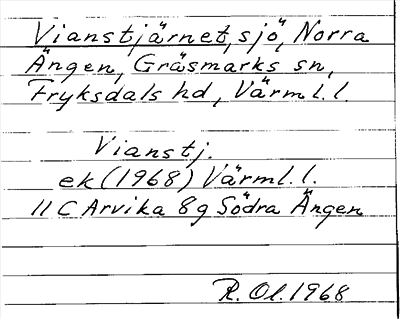 Vianstjärnet, sjö, Norra
Ängen, Gräsmarks sn,
Fryksdals hd, Värml.l.
Vianstj.
ek (1968) Värml.l.
11 C Arvika 8g Södra Ängen
R. Ol. 1968